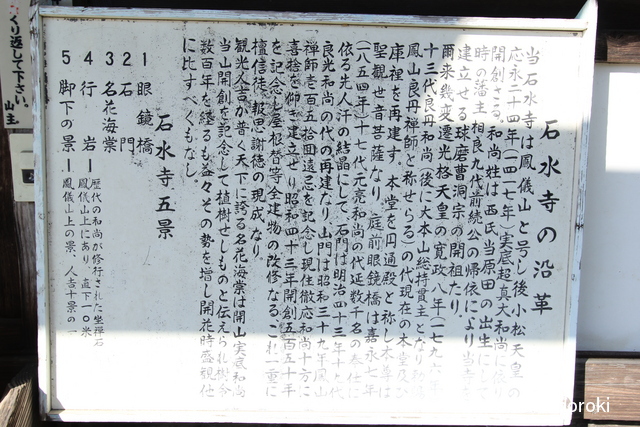 石水寺の沿革
当石水寺は鳳儀山と号し後小松天皇の
応永二十四年(一四一七年)実底超真大和尚に依り
開創さる。和尚姓は西氏当原田の出生にして
時の藩主相良九代前続公の帰依により当寺を
建立せる球磨曹洞宗の開祖たり。
爾来幾変遷光格天皇の寛政八年(一七九六年)
十三代良丹和尚(後に大本山総持貫主となり
鳳山良丹禅師と称せらる)の代現在の本堂及び
庫裡を再建す。本堂を円通殿と称し本尊は
聖観世音菩薩なり。庭前眼鏡橋は嘉永七年
(一八五四年)十七代元亮和尚の代延数千名の奉仕に
依る先人汗の結晶にして、石門は明治四十三年
良光和尚の代の再建なり。山門は昭和三十九年鳳山
禅師壱百五拾回遠忌を記念し現住徹応和尚十方に
喜捨を仰ぎ建立せり。昭和四十三年開創五百五十年
を記念し屋根替等全建物の改修なる。これ一重に
檀信徒報恩謝徳の現成なり。
観光人吉が普く天下に誇る名花海棠は開山実底和尚
当山開創を記念して植樹せしものと伝えられ樹令
数百年を経るも益々その勢を増し開花時盛観他
に比すべくもなし。
石水寺五景
1 眼鏡橋
2 石門
3 名花海棠
4 行岩ー歴代の和尚が修行された坐禅石
鳳儀山上にあり、直下一〇米
5 脚下の景ー鳳儀山上の景、人吉十景の一
くり返して下さい。
山主